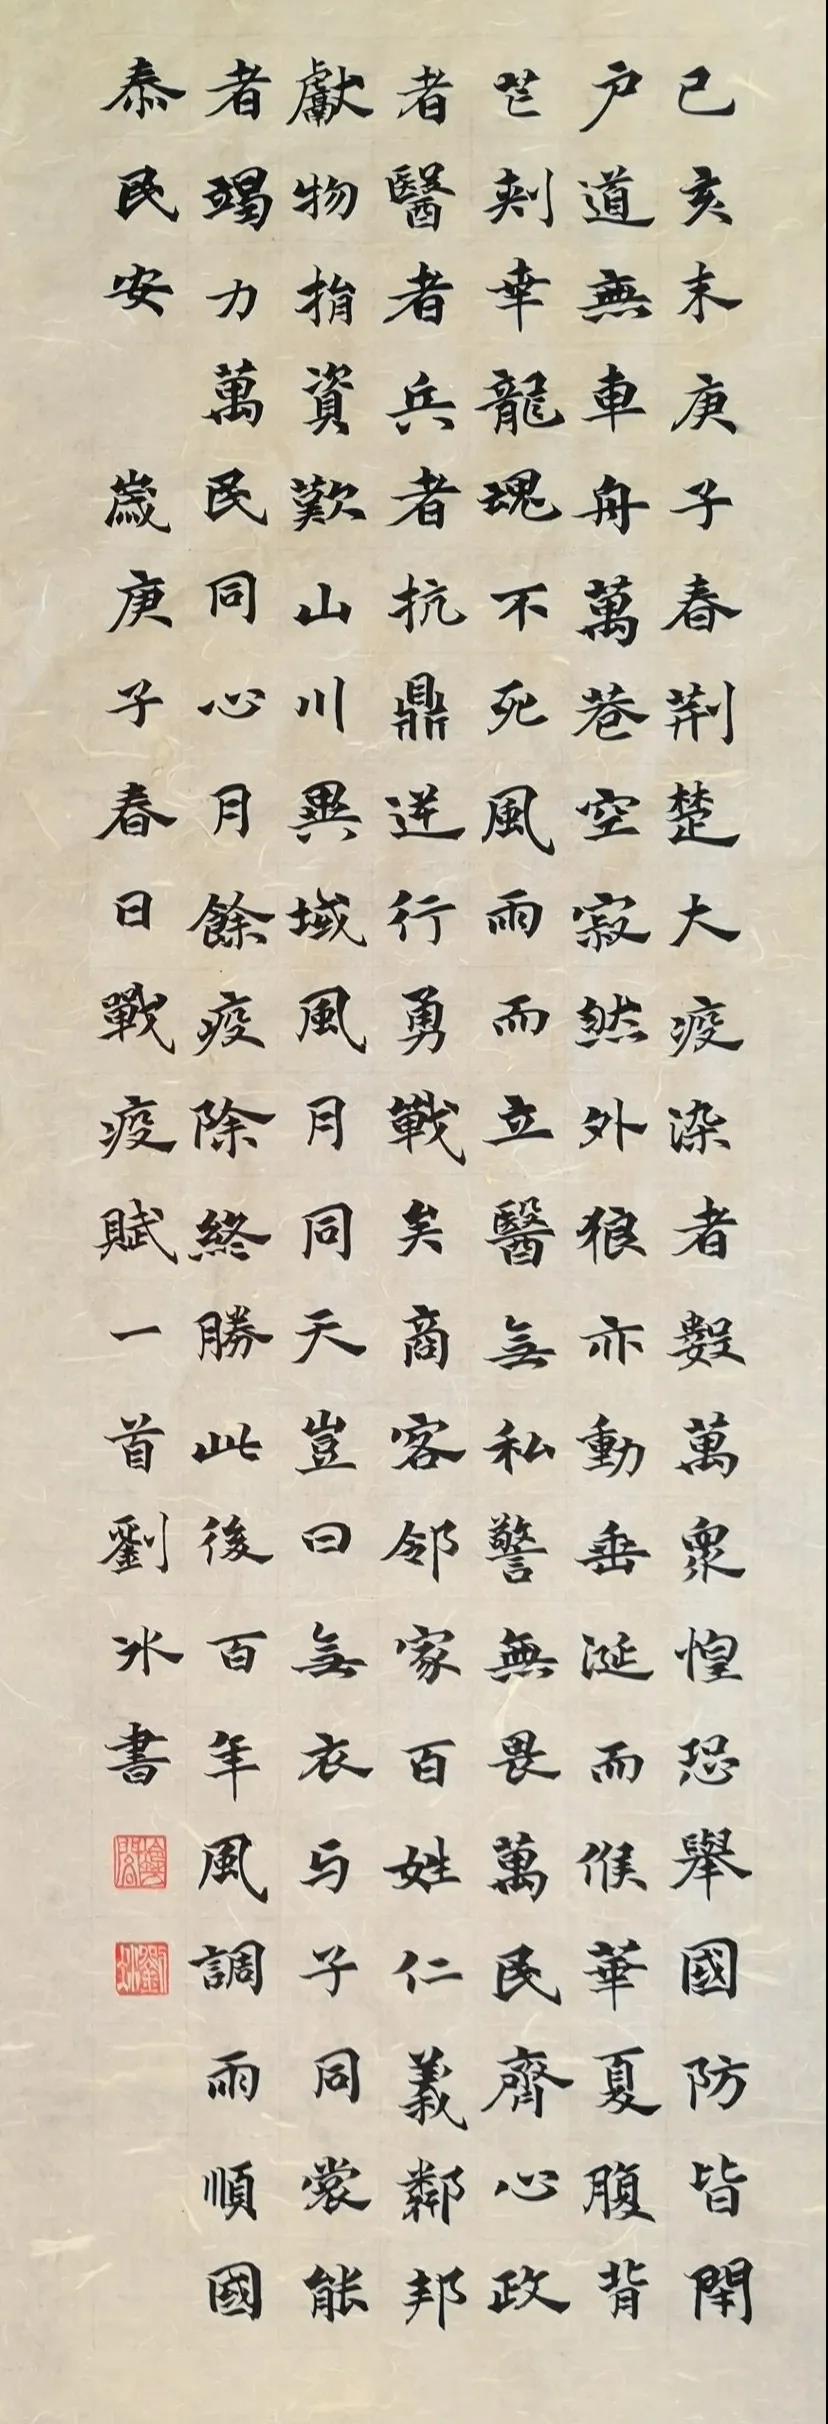 已亥末庚子春荆楚大疫染者數萬衆惶恐舉國防皆閉
户道無車舟萬巷空寂然外狼亦動垂涎而候華夏腹背
芒刺幸龍瑰不死風雨而立醫無私警無畏萬民齊心政
者醫者兵者抗鼎逆行勇戰矣商客邻家百姓仁義鄰邦
獻物捐資歎山川異域風月同天豈曰無衣与子同裳能
者竭力萬民同心月餘疫除終勝此後百年風調雨順國
泰民安 歲庚子春日戰疫賦一首劉冰書
劉冰